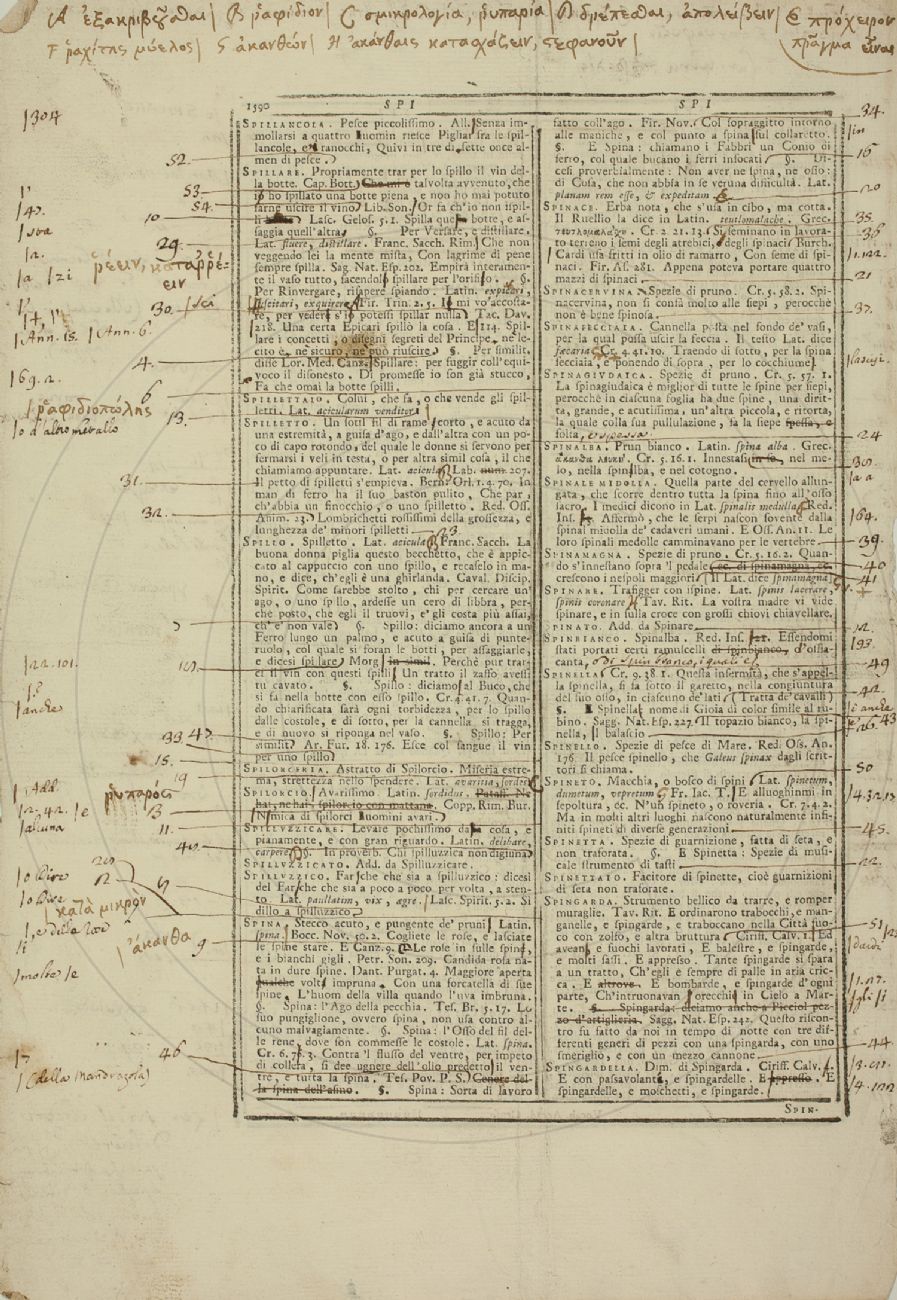 A ἐξακριβεῦσθαι | B ῥαφίδιον | C σμικρολογία, ῥυπαρία | D δρέπεσθαι, ἀπολείβειν | E πρόχειρον
F ῥαχίτης μύελος | G ἀκανθεών | H ἀκάνθαις καταχάζειν, στεφανοῦν | πρᾶγμα εἶναι
1590 SPI SPI
SPILLANCOLA. Pesce piccolissimo. All. Senza im-
mollarsi a quattro uomin riesce Pigliar fra le spil-
lancole, e ranocchi, Quivi in tre sette once al-
men di pesce.
SPILLARE. Propriamente trar per lo spillo il vin del-
la botte. Cap. Bott. talvolta avvenuto, che
io ho spillato una botte piena, e non ho mai potuto
farne uscire il vino. Lib. Son. Or fa ch'io non ispil-
li Lasc. Gelos. 5. 1. Spilla quella botte, e as-
saggia quell'altra §. Per Versare, e distillare.
Lat. fluere, distillare. Franc. Sacch. Rim. Che non
veggendo lei la mente mista, Con lagrime di pene
sempre spilla. Sag. Nat. Esp. 202. Empirà interamen-
te il vaso tutto, facendolo spillare per l'orifiso. §.
Per Rinvergare, risapere spiando. Latin. expiscari,
suscitari, exquirere. Fir. Trin. 2. 5. Io mi vo' accosta-
re, per vedere s'io potessi spillar nulla. Tac. Dav.
218. Una certa Epicari spillò la cosa. E 214. Spil-
lare i concetti, o disegni segreti del Principe, ne le-
cito è, nè sicuro, nè può riuscire. §. Per similit.
disse Lor. Med. Canz. Spillare: per fuggir coll'equi-
voco il disonesto. Di promesse io son già stucco,
Fa che omai la botte spilli.
SPILLETTAIO. Colui, che fa, o che vende gli spil-
letti. Lat. acicularum venditor.
SPILLETTO. Un sotil fil di rame corto, e acuto da
una estremità, a guisa d'ago, e dall'altra con un po-
co di capo rotondo, del quale le donne si servono per
fermarsi i veli in testa, o per altra simil cosa, il che
chiamiamo appuntare. Lat. acicula. Lab. num. 207.
Il petto di spilletti s'empieva. Bern. Orl. 1. 4. 70. In
man di ferro ha il suo baston pulito, Che par,
ch'abbia un finocchio, o uno spilletto. Red. Oss.
Anim. 23. Lombrichetti rossissimi della grossezza, e
lunghezza de' minori spilletti
SPILLO. Spilletto. Lat. acicula. Franc. Sacch. La
buona donna piglia questo becchetto, che è appic-
cato al cappuccio con uno spillo, e recaselo in ma-
no, e dice, ch'egli è una ghirlanda. Caval. Discip.
Spirit. Come sarebbe stolto, chi per cercare un'
ago, o uno spillo, ardesse un cero di libbra, per-
chè posto, che egli il truovi, e' gli costa più assai,
ch' e' non vale §. Spillo: diciamo ancora a un
Ferro lungo un palmo, e acuto a guisa di punte-
ruolo, col quale si foran le botti, per assaggiarle,
e dicesi spillare. Morg. in simil. Perchè pur trar-
ci il vin con questi spilli Un tratto il zaffo avessi
tu cavato. §. Spillo: diciamo al Buco, che
si fa nella botte con esso spillo. Cr. 4. 41. 7. Quan-
do chiarificata sarà ogni torbidezza, per lo spillo
dalle costole, e di sotto, per la cannella si tragga,
e di nuovo si riponga nel vaso. §. Spillo: Per
similit. Ar. Fur. 18. 176. Esce col sangue il vin
per uno spillo.
SPILORCERIA. Astratto di Spilorcio. Miseria estre-
ma, strettezza nello spendere. Lat. avaritia, sordes.
SPILORCIO. Avarissimo. Latin. sordidus. Pataff. Ne
hai, ne hai, spilorcio con mattana. Copp. Rim. Bur.
Nimica di spilorci uomini avari.
SPILUZZICARE. Levare pochissimo da cosa, e
pianamente, e con gran riguardo. Latin. delibare,
carpere. §. In proverb. Chi spiluzzica non digiuna.
SPILUZZICATO. Add. da Spiluzzicare.
SPILUZZICO. Far che che sia a spiluzzico: dicesi
del Far che che sia a poco a poco per volta, a sten-
to. Lat. paullatim, vix, agre. Lasc. Spirit. 5. 2. Si
dillo a spiluzzico
SPINA. Stecco acuto, e pungente de' pruni. Latin.
spina. Bocc. Nov. 50. 2. Cogliete le rose, e lasciate
le spine stare. E Canz. 9. Le rose in sulle spine,
e i bianchi gigli. Petr. Son. 209. Candida rosa na-
ta in dure spine. Dant. Purgat. 4. Maggiore aperta
volte impruna, Con una forcatella di sue
spine, L'huom della villa quando l'uva imbruna.
§. Spina: l'Ago della pecchia. Tes. Br. 5. 17. Lo
suo pungiglione, ovvero spina, non usa contro al-
cuno malvagiamente. §. Spina: l'Osso del fil del-
le rene, dove son commesse le costole. Lat. spina.
Cr. 6. 76. 3. Contra 'l flusso del ventre, per impeto
di collera, si dee ugnere dell'olio predetto il ven-
tre, e tutta la spina. Tes. Pov. P. S. Genere del-
la spina dell'asino. §. Spina: Sorta di lavoro
fatto coll'ago. Fir. Nov. Col sopraggitto intorno
alle maniche, e col punto a spina sul collaretto.
§. E Spina: chiamano i Fabbri un Conio di
ferro, col quale bucano i ferri infocati. §. Di-
cesi proverbialmente: Non aver ne spina, ne osso:
di Cosa, che non abbia in se veruna difficultà. Lat.
planam rem esse, & expeditam.
SPINACE. Erba nota, che s'usa in cibo, ma cotta.
Il Ruellio la dice in Latin. seutlomalache. Grec.
σευτλομαλαχον. Cr. 2. 21. 13. Si seminano in lavora-
to terreno i semi degli atrebici, degli spinaci. Burch.
Cardi usa fritti in olio di ramarro, Con seme di spi-
naci. Fir. As. 281. Appena poteva portare quattro
mazzi di spinaci.
SPINACERVINA. Spezie di pruno. Cr. 5. 58. 2. Spi-
nacervina, non si confà molto alle siepi, perocchè
non è bene spinosa.
SPINAFECCIAIA. Cannella posta nel fondo de' vasi,
per la qual possa uscir la feccia. Il testo Lat. dice
fæcaria. Cr. 4. 41. 10. Traendo di sotto, per la spina
fecciaia, e ponendo di sopra, per lo cocchiume.
SPINAGIUDAICA. Spezie di pruno. Cr. 5. 57. 1.
La spinagiudaica è miglior di tutte le spine per siepi,
perocchè in ciascuna foglia ha due spine, una dirit-
ta, grande, e acutissima, un'altra piccola, e ritorta,
la quale colla sua pullulazione, fa la siepe spessa, e
folta, e spessa.
SPINALBA. Prun bianco. Latin. spina alba. Grec.
ἄκανθα λευκή. Cr. 5. 16. 1. Innestasi in se, nel me-
lo, nella spinalba, e nel cotogno.
SPINALE MIDOLLA. Quella parte del cervello allun-
gata, che scorre dentro tutta la spina fino all'osso
sacro. I medici dicono in Lat. spinalis medulla. Red.
Ins. Affermò, che le serpi nascon sovente dalla
spinal midolla de' cadaveri umani. E Oss. An. 11. Le
loro spinali medolle camminavano per le vertebre.
SPINAMAGNA. Spezie di pruno. Cr. 5. 16. 2. Quan-
do s'innestano sopra 'l pedale, ec. di spinamagna, ec.
crescono i nespoli maggiori. Il Lat. dice spinamagna.
SPINARE. Trafigger con ispine. Lat. spinis lacerare,
spinis coronare. Tav. Rit. La vostra madre vi vide
spinare, e in sulla croce con grossi chiovi chiavellare.
SPINATO. Add. da Spinare.
SPINBIANCO. Spinalba. Red. Ins. 121. Essendomi
stati portati certi ramuscelli di spinbianco, d'ossia-
canta, o di spin bianco, i quali
SPINELLA. Cr. 9. 38. 1. Questa infermità, che s'appel-
la spinella, si fa sotto il garetto, nella congiuntura
del suo osso, in ciascuno de' lati. Tratta de' cavalli.
§. Spinella nome di Gioia di color simile al ru-
bino. Sagg. Nat. Esp. 227. Il topazio bianco, la spi-
nella, il balascio
SPINELLO. Spezie di pesce di Mare. Red. Oss. An.
176. Il pesce spinello, che Galeus spinax dagli scrit-
tori si chiama.
SPINETO. Macchia, o bosco di spini. Lat. spinetum,
dumetum, vepretum. Fr. Iac. T. E alluoghinmi in
sepoltura, ec. N'un spineto, o roveria. Cr. 7. 4. 2.
Ma in molti altri luoghi nascono naturalmente infi-
niti spineti di diverse generazioni
SPINETTA. Spezie di guarnizione, fatta di seta, e
non traforata. §. E Spinetta: Spezie di musi-
cale strumento di tasti
SPINETTAIO. Facitore di spinette, cioè guarnizioni
di seta non traforate.
SPINGARDA. Strumento bellico da trarre, e romper
muraglie. Tav. Rit. E ordinarono trabocchi, e man-
ganelle, e spingarde, e traboccano nella Città fuo-
co con zolfo, e altra bruttura. Ciriff. Calv. 1. Ed
avean, e fuochi lavorati, E balestre, e spingarde,
e molti sassi. E appresso. Tante spingarde si spara
a un tratto, Ch'egli è sempre di palle in aria cric-
ca. E altrove. E bombarde, e spingarde d'ogni
parte, Ch'intruonavan orecchi in Cielo a Mar-
te. §. Spingarda: diciamo anche a Picciol pez-
zo d'artiglieria. Sagg. Nat. Esp. 242. Questo riscon-
tro fu fatto da noi in tempo di notte con tre dif-
ferenti generi di pezzi con una spingarda, con uno
smeriglio, e con un mezzo cannone
SPINGARDELLA. Dim. di Spingarda. Ciriff. Calv. 1.
E con passavolanti, e spingardelle. E appresso. E
spingardelle, e moschetti, e spingarde.
SPIN-
1304
52.
53.
54.
10
29.
ῥέειν, καταρρέ-
ειν
30.
Ann. 15. | Ann. 6.
4.
169. 2.
6
ῥαφιδιοπώλης
13.
o d'altro metallo
31.
32.
23.
22. 101.
anche
33
15.
19
Add.
ῥυπαρός
alcuna
11.
κατὰ μικρὸν
ἄκανθα
9
17
(della Mandragola)
46
34.
16
20
35.
36
1. 122.
21
37.
24
30.
164.
39.
40
41
12.
193.
49
42.
anche
43
50
45.
22.
51
44